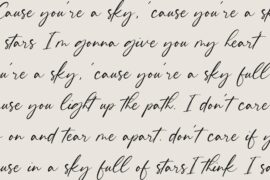 Cause you're a sky, 'cause you're a sk
stars I'm gonna give you my heart
u're a sky, 'cause you're a sky full
ause you light up the path. I don't care
o on and tear me apart. don't care if y
ause in a sky full of stars I think I sa